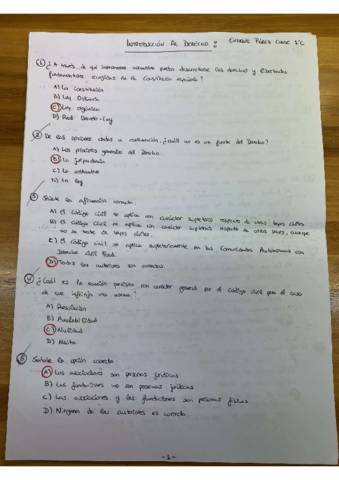 INTRODUCCIÓN AL DERECHO: ENRIQUE PÉREZ
1) ¿A través de qué instrumento normativo pueden desarrollarse los derechos y libertades
fundamentales recogidos en la Constitución española?
A) La Constitución
B) Ley Ordinaria
C) Ley orgánica
D) Real Decreto-Ley
2) De las opciones dadas a continuación, ¿cuál no es un fuente del Derecho?
A) Los principios generales del Derecho.
B) La jurisprudencia
C) La costumbre
D) La ley
3) Señale la afirmación correcta:
A) El código civil se aplica con carácter supletorio respecto de otras leyes civiles
B) El código civil se aplica con carácter supletorio respecto de otras leyes, aunque
no se trate de leyes civiles.
C) El código civil se aplica supletoriamente en las Comunidades Autónomas con
Derecho civil Foral.
D) Todas las anteriores son correctas.
4) ¿Cuál es la sanción prevista con carácter general en el código civil para el caso
de que infrinja una norma?
A) Resolución
B) Anulabilidad
C) Nulidad
D) Multa
5) Señale la opción correcta:
A) Las asociaciones son personas jurídicas
B) Las fundaciones no son personas jurídicas
C) Las asociaciones y las fundaciones son personas físicas
D) Ninguna de las anteriores es correcta.
-1-